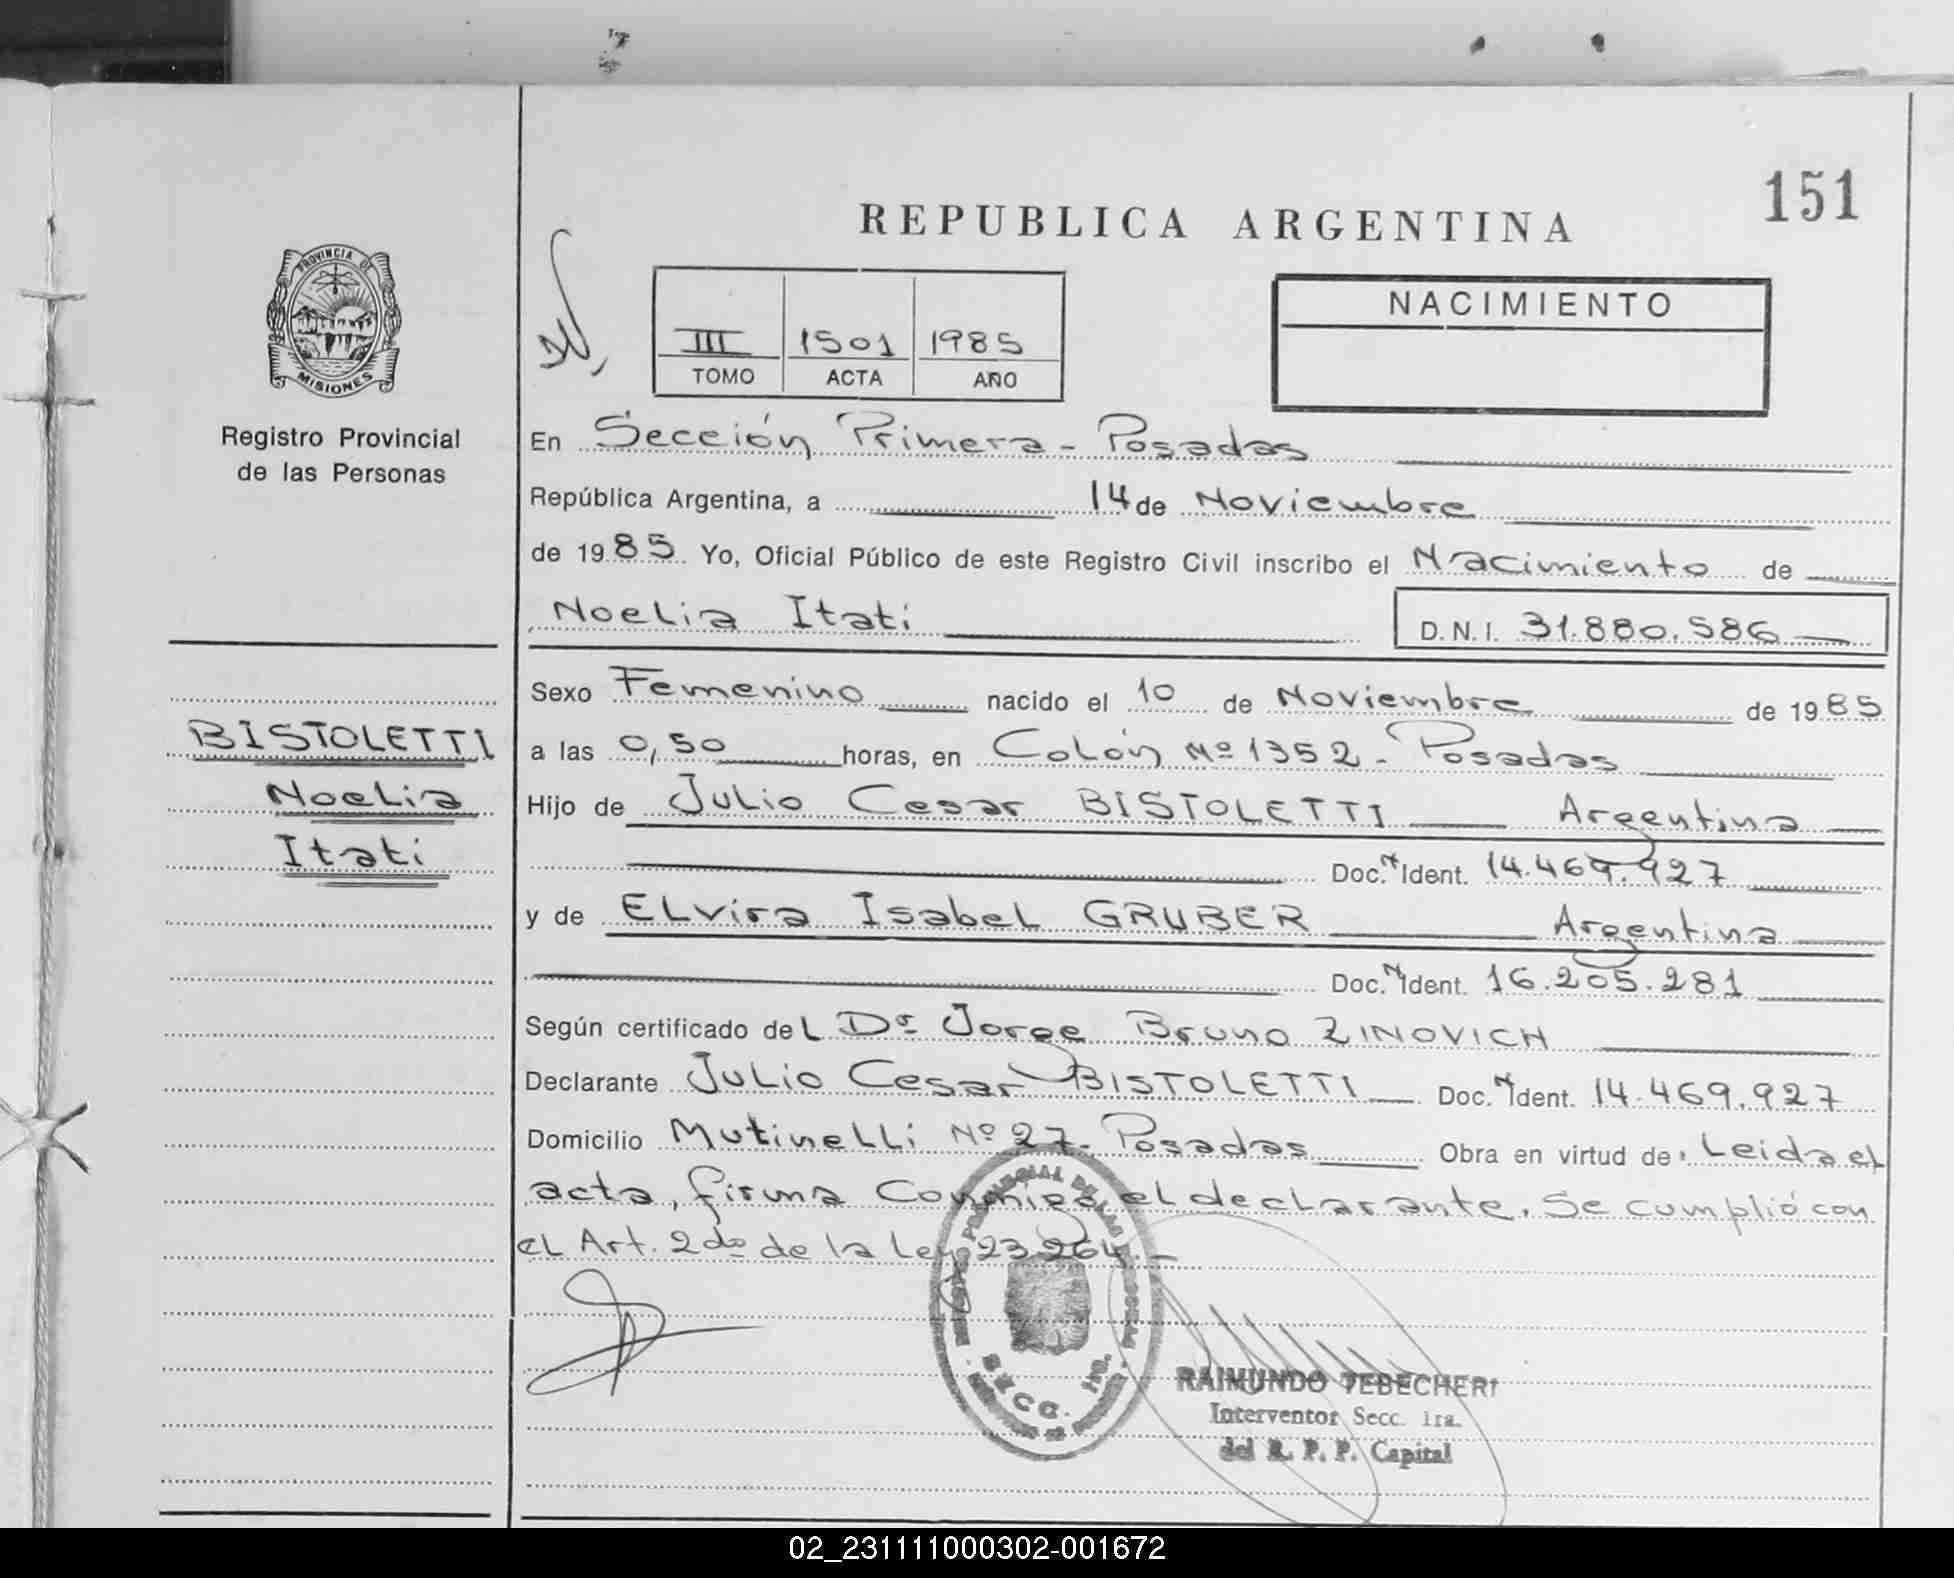 151
REPUBLICA ARGENTINA
PROVINCIA DE
MISIONES
Registro Provincial
de las Personas
III 1501 1985
TOMO ACTA AÑO
NACIMIENTO
En Sección Primera - Posadas
República Argentina, a 14 de Noviembre
de 1985 Yo, Oficial Público de este Registro Civil inscribo el Nacimiento de
Noelia Itati D.N.I. 31.880.586
BISTOLETTI
Noelia
Itati
Sexo Femenino nacido el 10 de Noviembre de 1985
a las 0,50 horas, en Colón Nº 1352 - Posadas
Hijo de Julio Cesar BISTOLETTI Argentina
Doc. N Ident. 14.469.927
y de ELvira Isabel GRUBER Argentina
Doc. N Ident. 16.205.281
Según certificado del Dr Jorge Bruno ZINOVICH
Declarante Julio Cesar BISTOLETTI Doc. N Ident. 14.469.927
Domicilio Mutinelli Nº 27 - Posadas Obra en virtud de: Leida el
acta, firma Conmigo el declarante. Se cumplió con
el Art. 2do de la Ley 23264.-
SECC. 1ra.
RAIMUNDO TEBECHERI
Interventor Secc. 1ra.
del R. P. P. Capital
02_231111000302-001672